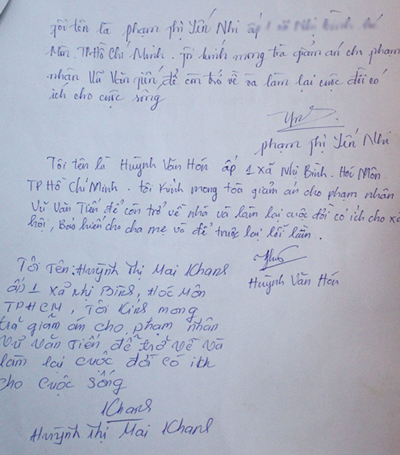 Tôi tên là phạm thị Yến Nhi ấp 1 xã Nhị Bình
Môn. TP Hồ Chí Minh. Tôi kính mong tòa giảm án cho phạm
nhân Vũ Văn Tiến để còn trở về và làm lại cuộc đời có
ích cho cuộc sống
phạm thị Yến Nhi
Tôi tên là Huỳnh Văn Hón ấp 1 xã Nhị Bình. Hóc Môn.
TP Hồ Chí Minh. tôi Kính mong toà giảm án cho phạm nhân
Vũ Văn Tiến để còn trở về nhà và làm lại cuộc đời có ích cho xã
hội, Báo hiếu cho cha mẹ và để chuộc lại lỗi lầm.
Huỳnh Văn Hón
Tôi Tên: Huỳnh Thị Mai Khanh
ấp 1 xã Nhị Bình, Hóc Môn
TPHCM, Tôi Kính mong
tòa giảm án cho phạm nhân
Vũ Văn Tiến để trở về và
làm lại cuộc đời có ích
cho cuộc sống
Khanh
Huỳnh Thị Mai Khanh